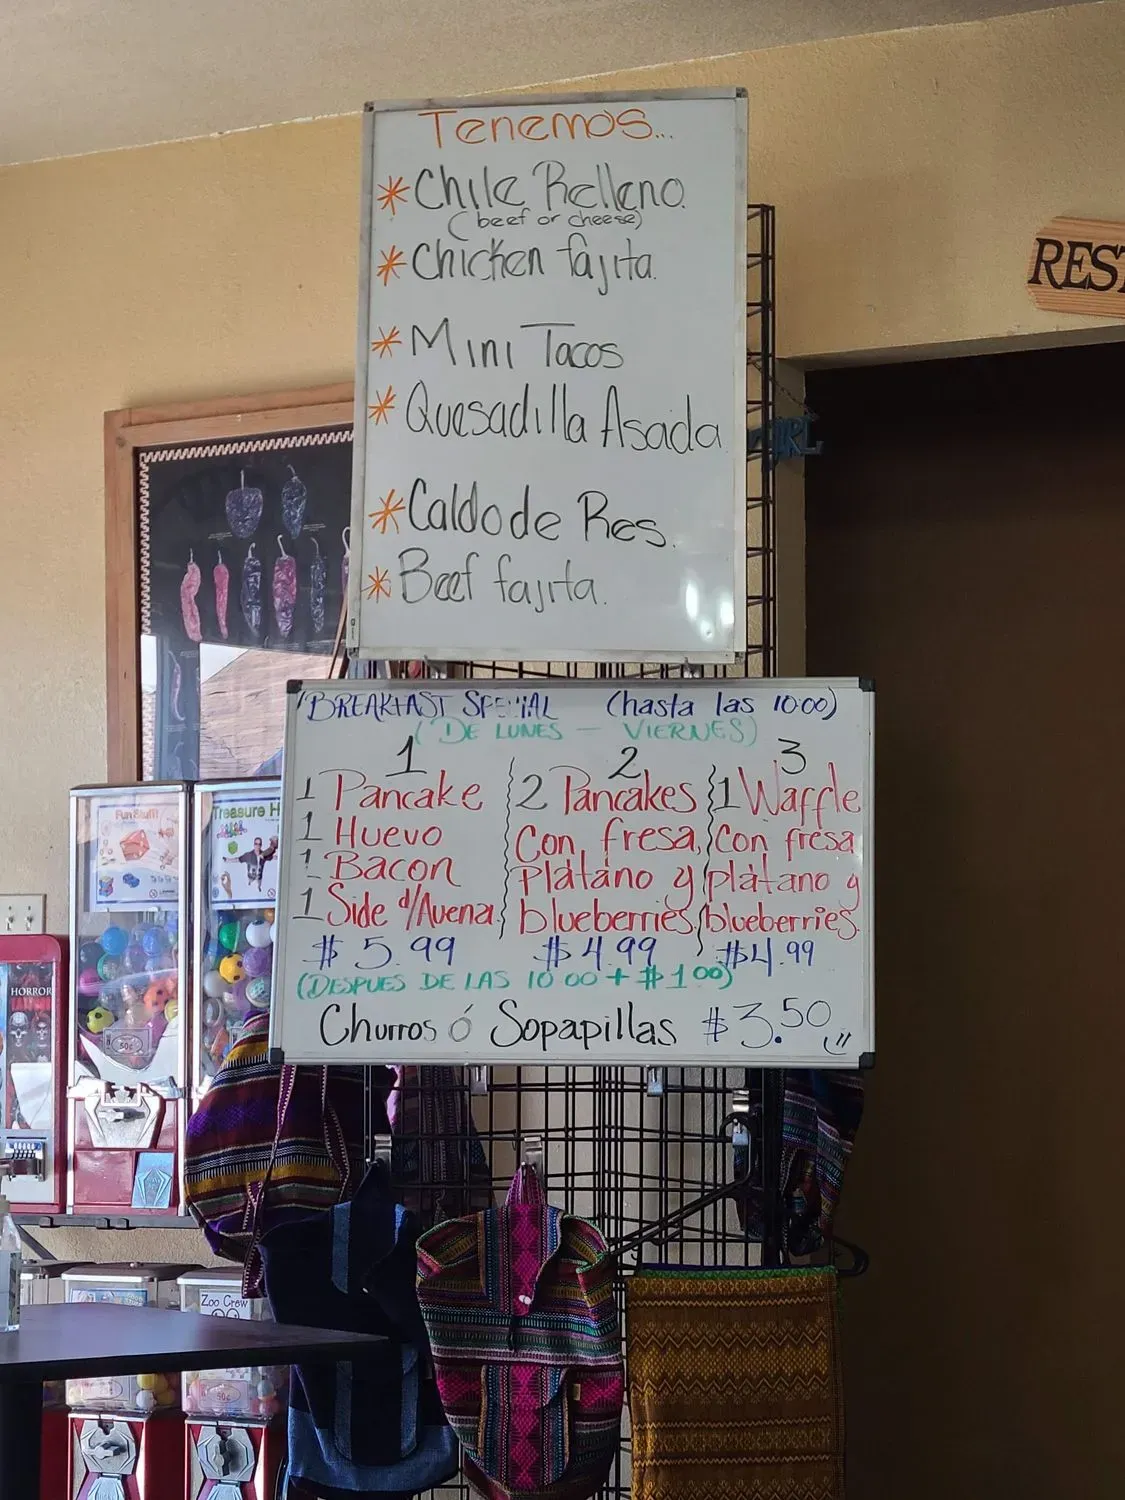 Tenemos...
* Chile Relleno.
(beef or cheese)
* Chicken fajita.
* Mini Tacos
* Quesadilla Asada
* Caldo de Res.
* Beef fajita.
REST
BREAKFAST SPECIAL (hasta las 10:00)
(DE LUNES - VIERNES)
1
1 Pancake
1 Huevo
1 Bacon
1 Side d/Avena
$5.99
2
2 Pancakes
Con fresa,
plàtano y
blueberries.
$4.99
3
1 Waffle
Con fresa
plàtano y
blueberries.
$4.99
(DESPUES DE LAS 10 00 + $1 00)
Churros ó Sopapillas $3.50
Fun Stuff!
Treasure H
HORROR
50¢
Zoo Crew
50¢